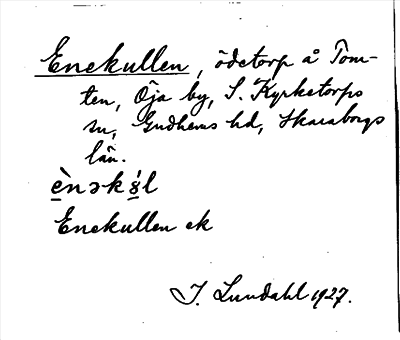 Enekullen, ödetorp å Tom-
ten, Öja by, S. Kyrketorps
sn, Gudhems hd, Skaraborgs
län.
Enekullen ek
I. Lundahl 1927.